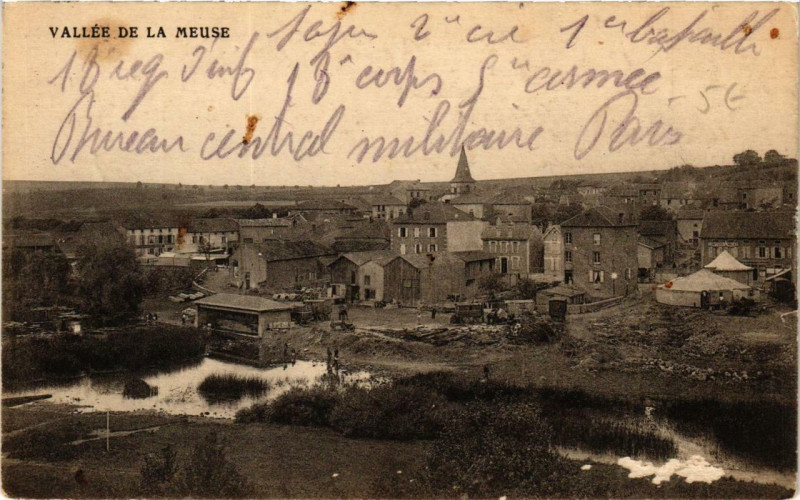 VALLÉE DE LA MEUSE
2e cie 1er bataillon
18 reg d'inf 1er corps 5e armée
5€
Bureau central militaire Paris